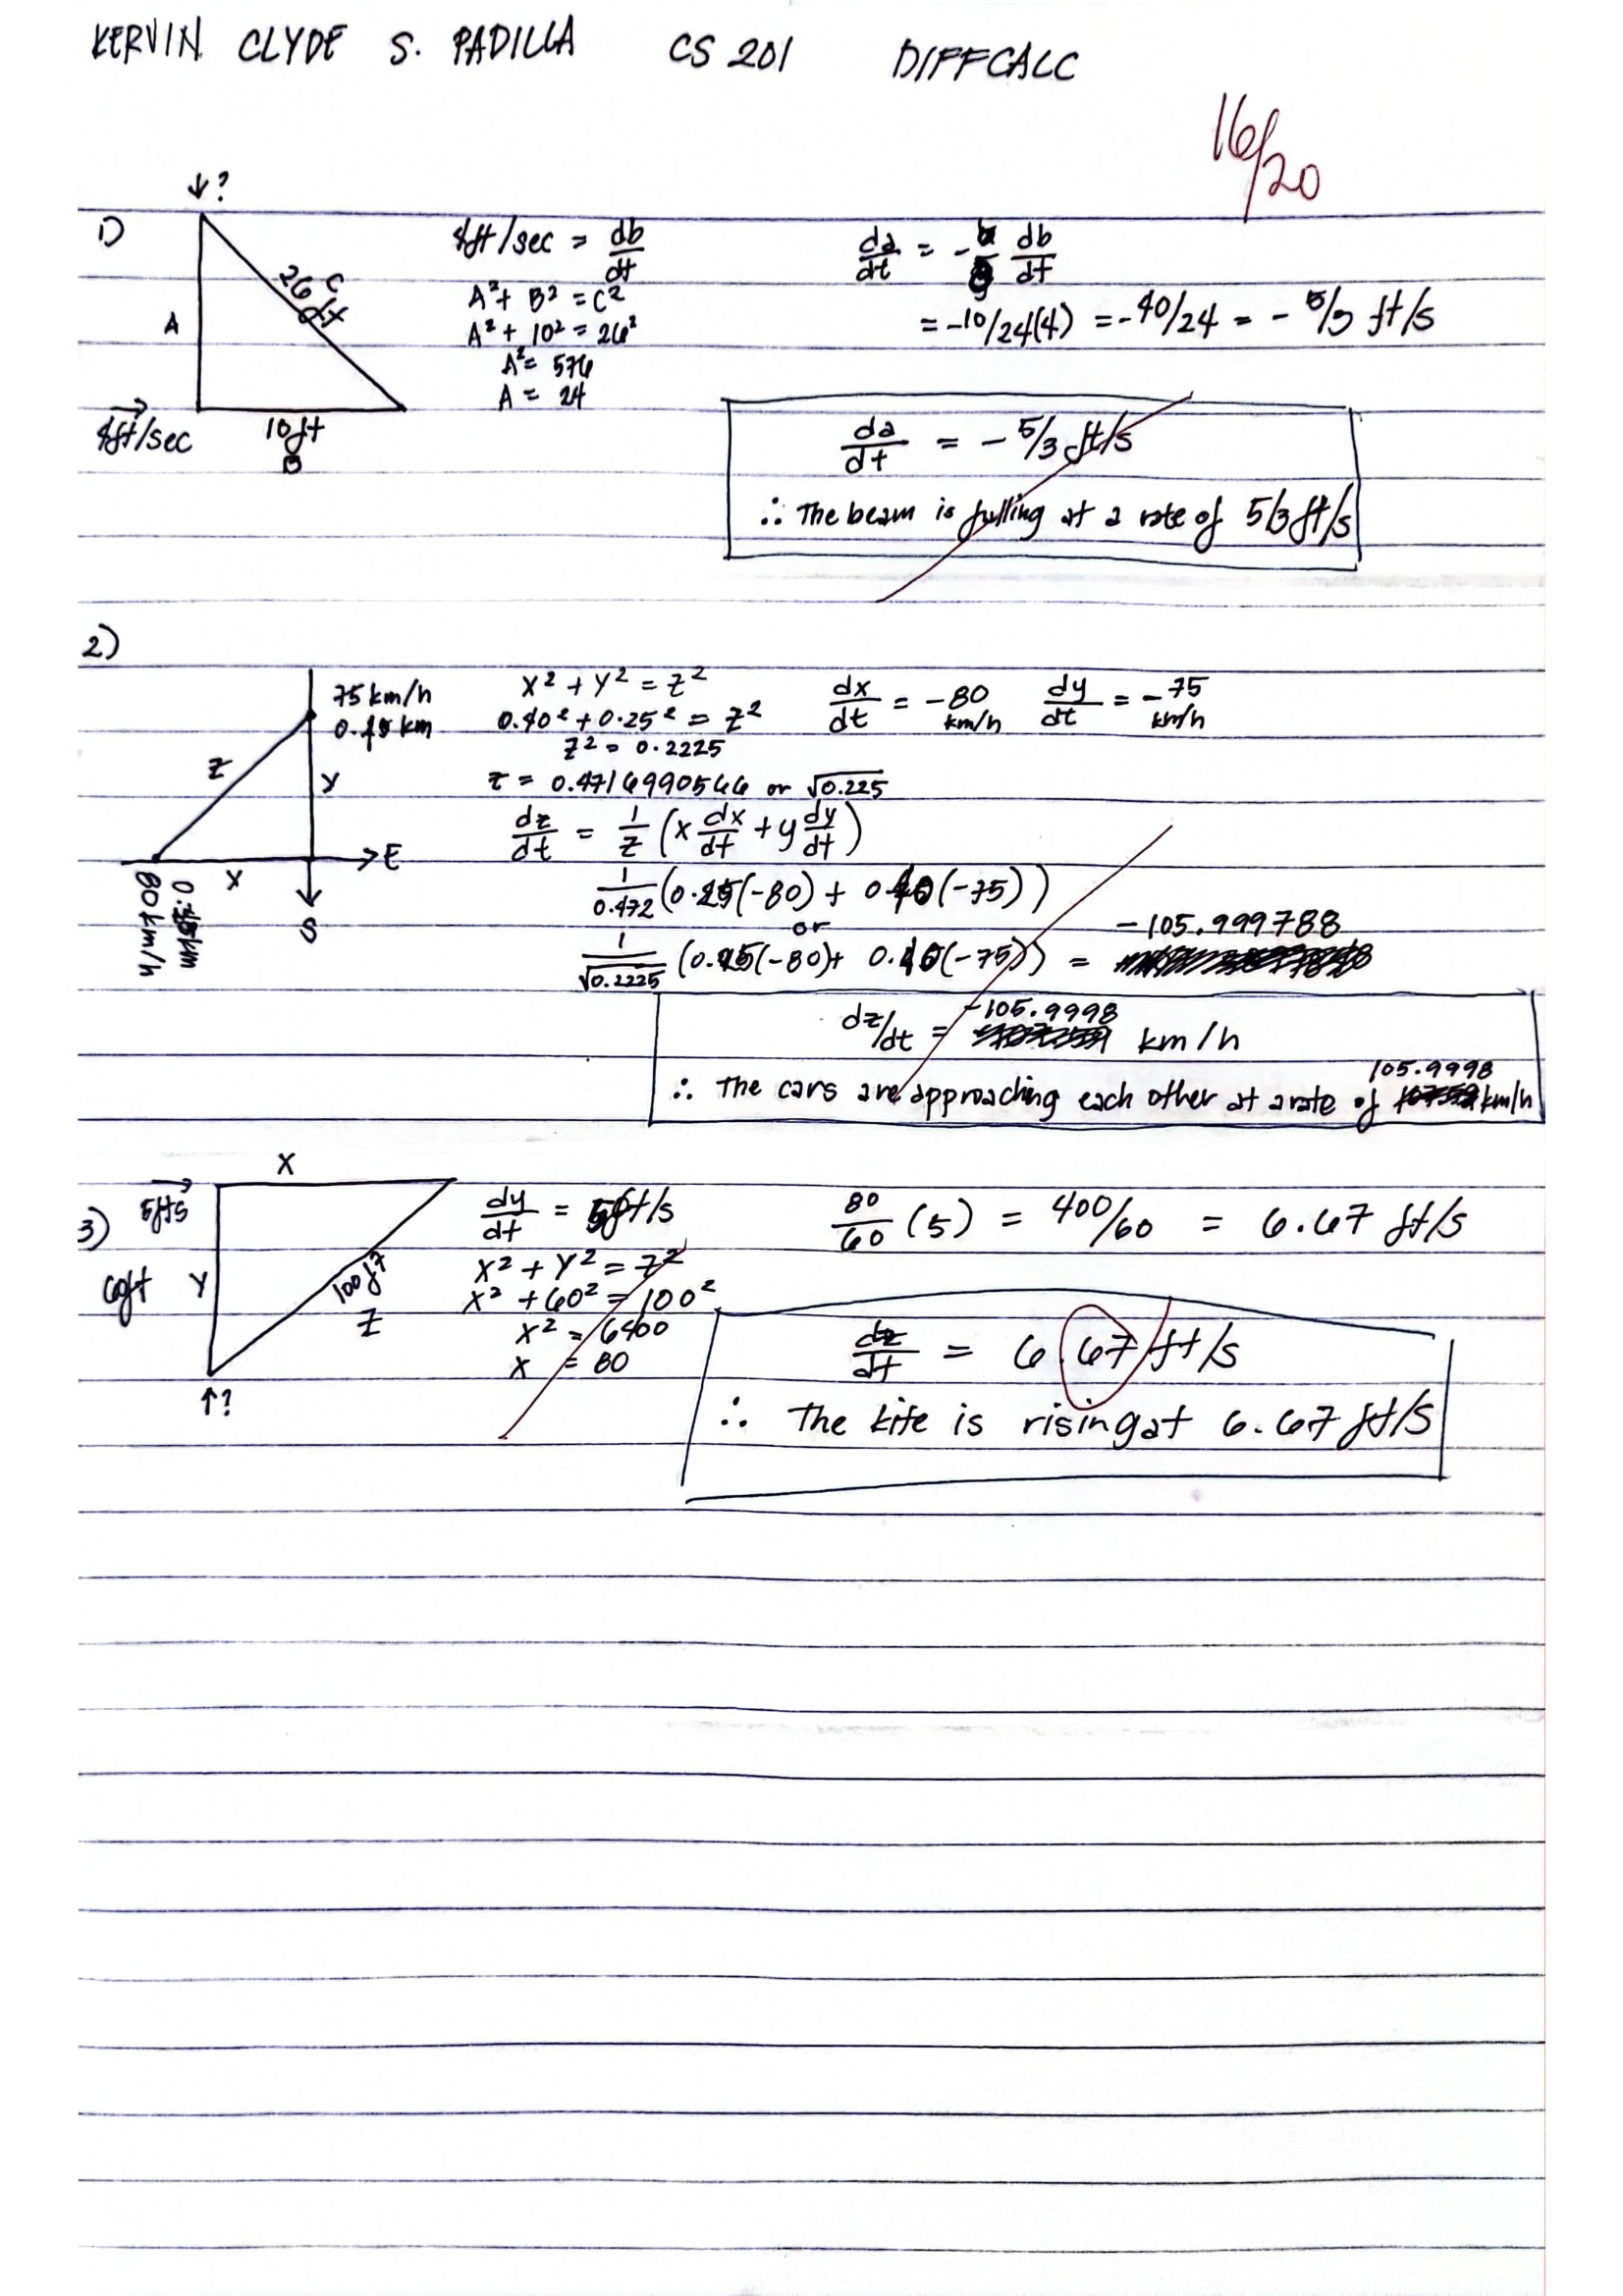 KERVIN CLYDE S. PADILLA CS 201 DIFFCALC
16/20
↓?
1)
A
26ft
C
10ft
B
4ft/sec
4ft/sec = db/dt
A² + B² = C²
A² + 10² = 26²
A² = 576
A = 24
da/dt = - b/a db/dt
= -10/24(4) = -40/24 = - 5/3 ft/s
da/dt = - 5/3 ft/s
∴ The beam is falling at a rate of 5/3 ft/s
2)
75 km/h
km
z
y
x
E
S
80 km/h
x² + y² = z²
0.40² + 0.25² = z²
z² = 0.2225
z = 0.4716990566 or √0.225
dx/dt = -80 km/h dy/dt = -75 km/h
dz/dt = 1/z (x dx/dt + y dy/dt)
1/0.472 (0.25(-80) + 0.40(-75))
or
1/√0.2225 (0.25(-80) + 0.40(-75)) = -105.999788
dz/dt = -105.9998 km/h
∴ The cars are approaching each other at a rate of 105.9998 km/h
3)
x
5fts
60ft
y
100ft
z
↑?
dy/dt = 5ft/s
x² + y² = z²
x² + 60² = 100²
x² = 6400
x = 80
80/60 (5) = 400/60 = 6.67 ft/s
dz/dt = 6.67 ft/s
∴ The kite is rising at 6.67 ft/s